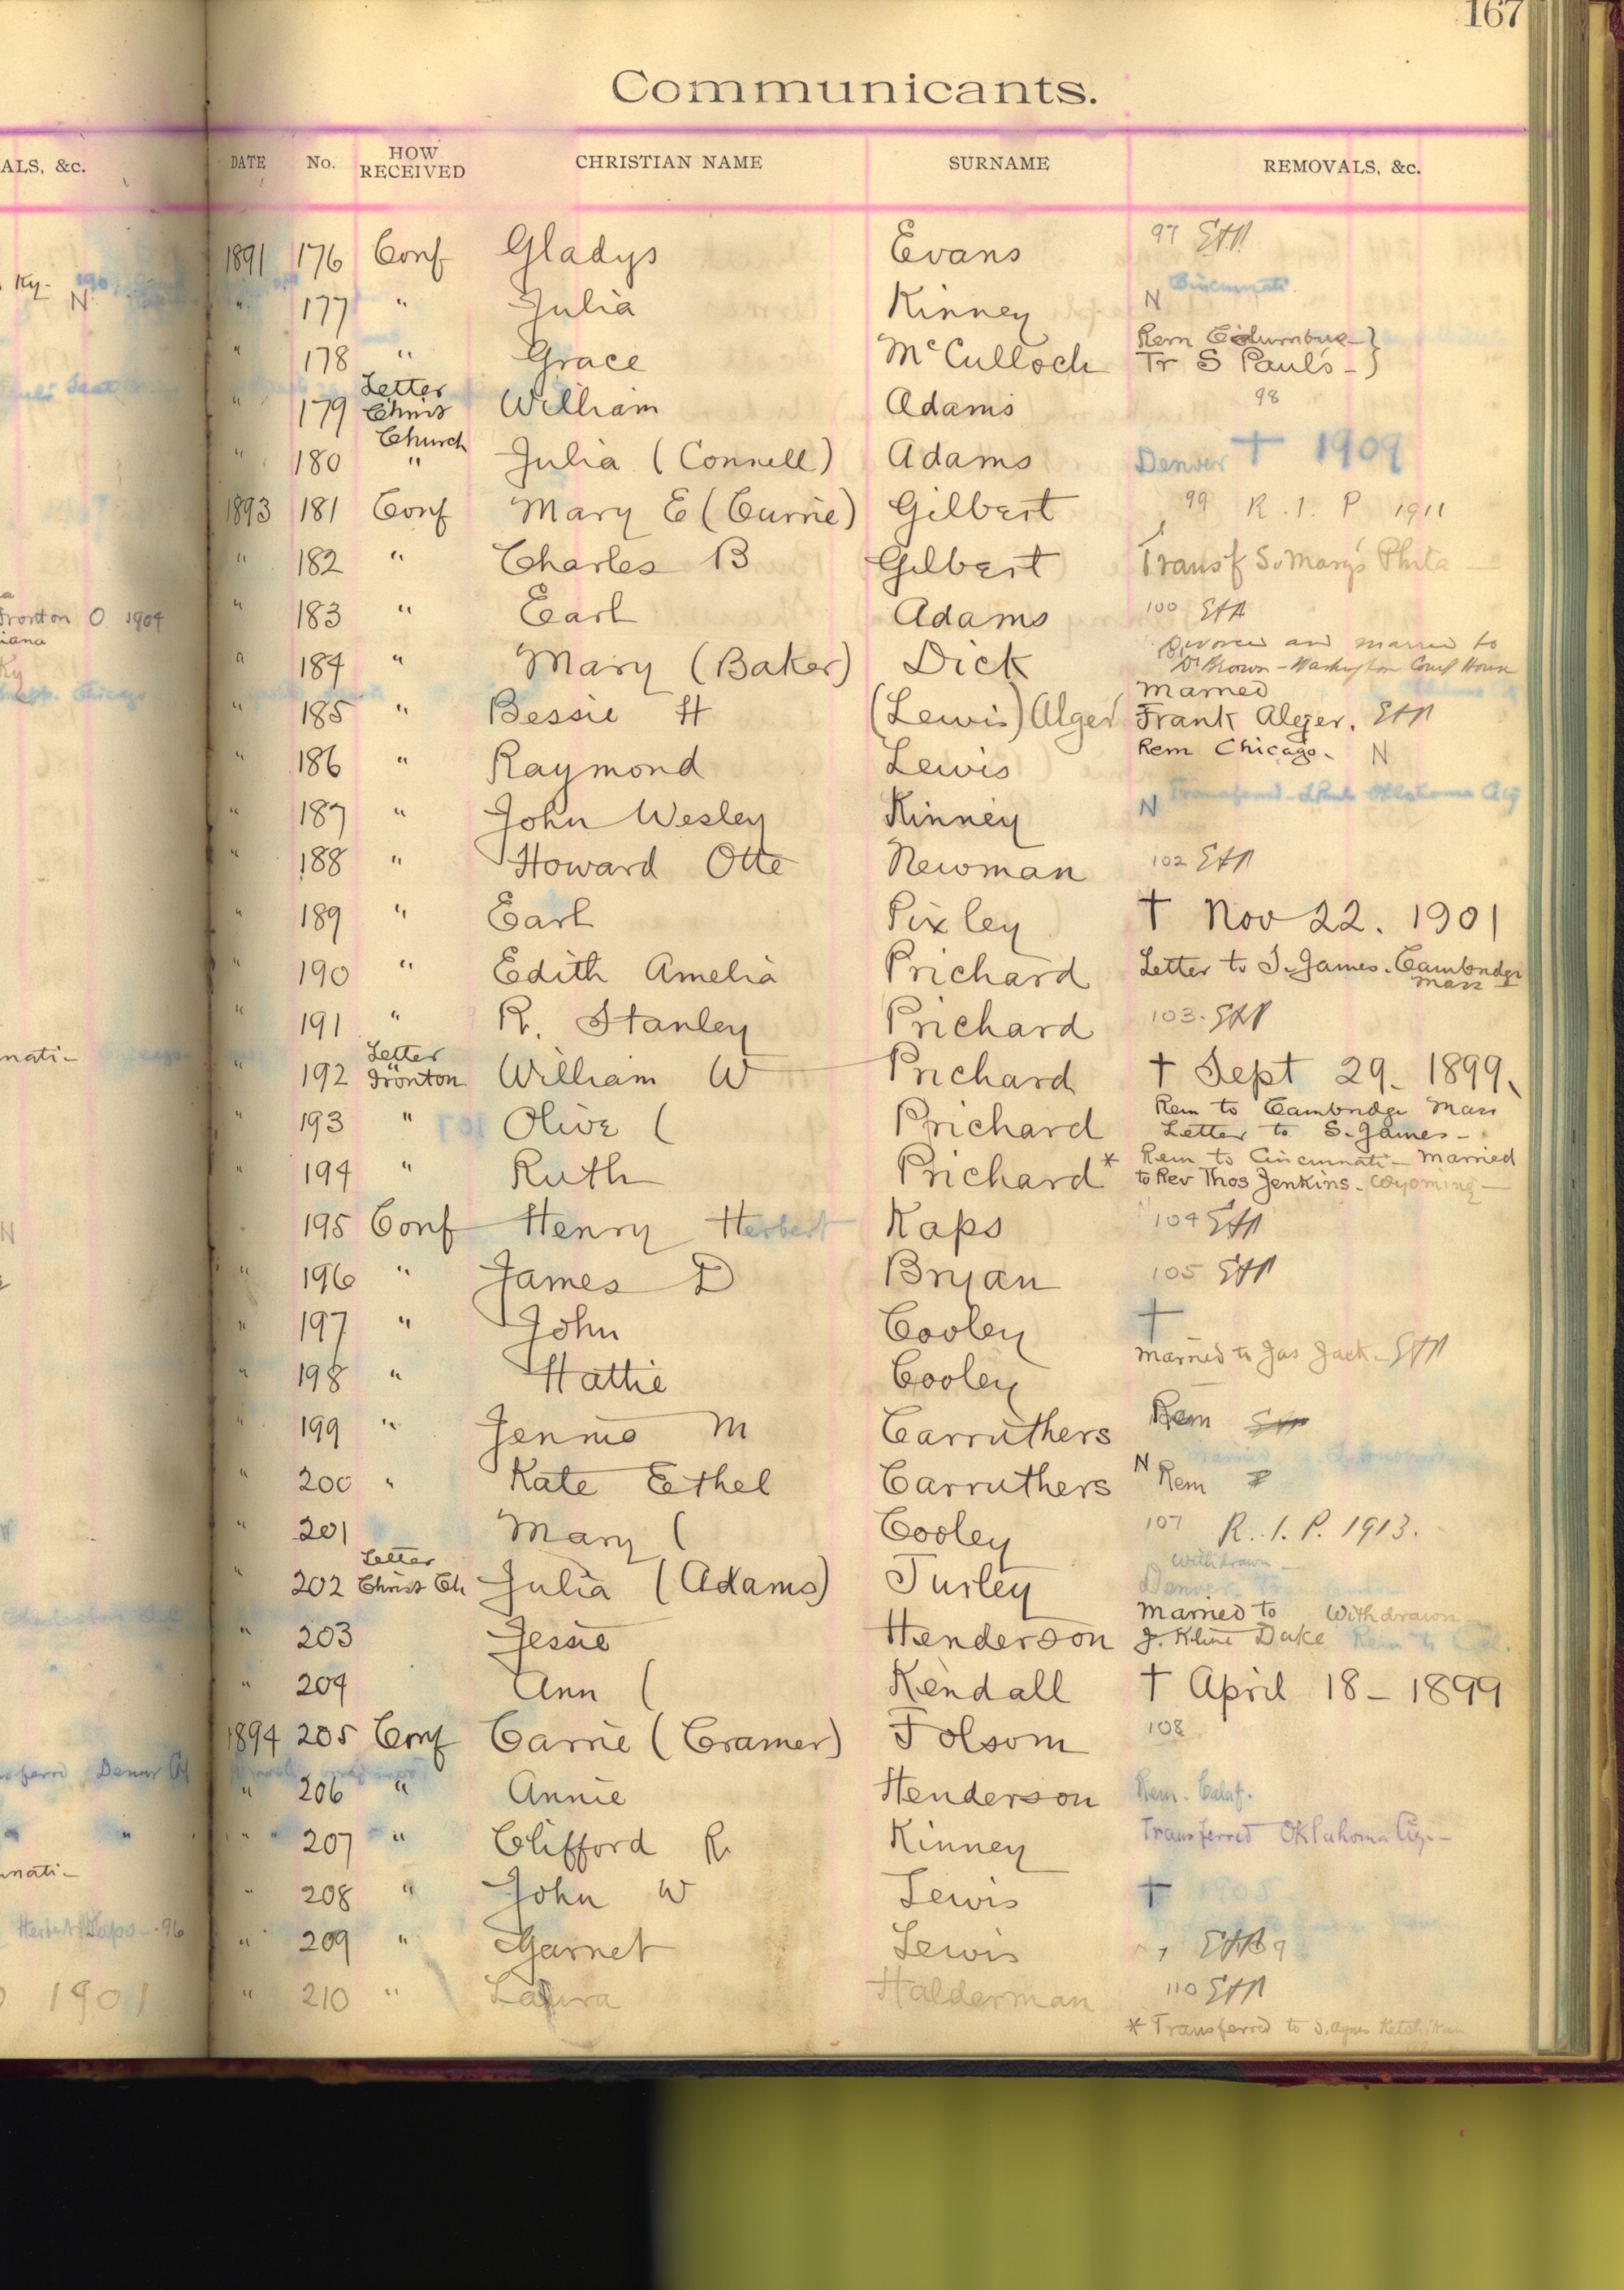 167
Communicants.
ALS, &c. DATE No. HOW RECEIVED CHRISTIAN NAME SURNAME REMOVALS, &c.
1891 176 Conf Gladys Evans 97
Ky. N " 177 " Julia Kinney N Cincinnati
" 178 " Grace McCulloch Rem Columbus - }
Tr S Paul's - }
" 179 Letter Christ Church William Adams 98
" 180 " Julia (Connell) Adams Denver † 1909
1893 181 Conf Mary E (Currie) Gilbert 99 R. I. P 1911
" 182 " Charles B Gilbert Transf S. Mary's Phila
Ironton O 1904 " 183 " Earl Adams 100
Ky " 184 " Mary (Baker) Dick Divorced and married to
Dr Brown - Washington Court House
" 185 " Bessie H (Lewis) Alger Married
Frank Alger.
" 186 " Raymond Lewis Rem Chicago. N
" 187 " John Wesley Kinney N Transferred S Pauls Oklahoma City
" 188 " Howard Otte Newman 102
" 189 " Earl Pixley † Nov 22. 1901
" 190 " Edith Amelia Prichard Letter to S. James. Cambridge
Mass
" 191 " R. Stanley Prichard 103
nati- " 192 Letter Ironton William W Prichard † Sept 29. 1899
" 193 " Olive ( Prichard Rem to Cambridge Mass
Letter to S. James -
" 194 " Ruth Prichard* Rem to Cincinnati - Married
to Rev Thos Jenkins. Wyoming -
N 195 Conf Henry Herbert Kaps 104
" 196 " James D Bryan 105
" 197 " John Cooley †
" 198 " Hattie Cooley Married to Jas Jack -
" 199 " Jennie M Carruthers Rem
" 200 " Kate Ethel Carruthers N Rem
" 201 Mary ( Cooley 107 R. I. P. 1913.
" 202 Letter Christ Ch Julia (Adams) Turley Withdrawn -
Denver.
" 203 Jessie Henderson Married to Withdrawn
J. Kline Duke Rem to Cal.
" 204 Ann ( Kendall † April 18 - 1899
1894 205 Conf Carrie (Cramer) Folsom 108
" 206 " Annie Henderson Rem. Calif.
" " 207 " Clifford R. Kinney Transferred Oklahoma City -
nati- " 208 " John W Lewis † 1905
Herbert Kaps - 96 " 209 " Garnet Lewis
1901 " 210 " Laura Halderman 110
* Transferred to S. Agnes Ketchikan